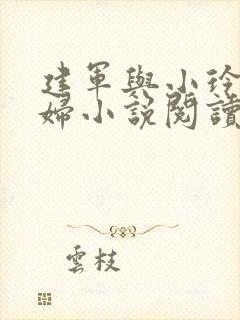 建軍與小玲
婦小說閱讀
雲枝